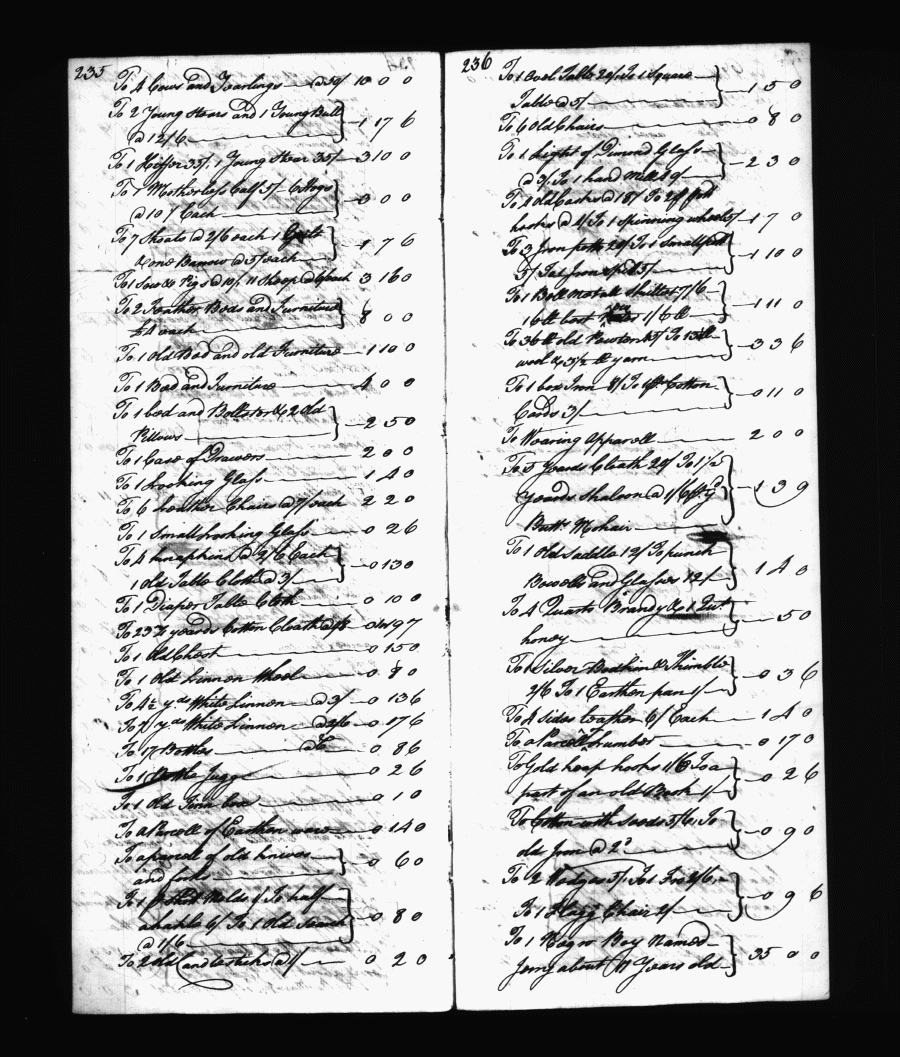 235
To 4 Cows and Yearlings @ 50/ 10 0 0
To 2 Young Stears and 1 Young Bull
@ 12/6 1 17 6
To 1 Heiffer 35/. 1 Young Stear 35/ 3 10 0
To 1 Motherless Calf 5/ 6 Hogs
@ 10/ Each 3 0 0
To 7 Shoats @ 2/6 each 1
& one Barrow @ 5/ each 1 7 6
To 1 Sow & Pigs @ 10/ 11 Sheep @ 6/ each 3 16 0
To 2 Feather Beds and Furniture
£4 each 8 0 0
To 1 Old Bed and old Furniture 1 10 0
To 1 Bed and Furniture 4 0 0
To 1 bed and Bolster & 2 Old
Pillows 2 5 0
To 1 Case of Drawers 2 0 0
To 1 Looking Glass 1 4 0
To 6 Leather Chairs @ 7/ each 2 2 0
To 1 Small Looking Glass 0 2 6
To 4 knapkins @ 2/6 Each
1 old Table Cloth @ 3/ 0 13 0
To 1 Diaper Table Cloth 0 10 0
To 23½ yeards Cotton Cloath @ 19 7
To 1 Old Chest 0 15 0
To 1 Old Linnen Wheel 0 8 0
To 4½ yds White Linnen @ 3/ 0 13 6
To 7 yds White Linnen @ 2/6 0 17 6
To 17 Bottles @ 6 0 8 6
To 1 Bottle Jugg 0 2 6
To 1 Old Tinn 0 1 0
To a Parcell of Earthen ware 0 14 0
To a parcel of old knives
and forks 0 6 0
To 1 Shot Molds 1/ To half
6/ To 1 Old
@ 1/6 0 8 0
To 2 old Candlesticks @ 1/ 0 2 0
236
To 1 Oval Table 20/ To 1 Square
Table @ 5/ 1 5 0
To 6 Old Chairs 0 8 0
To 1 Light of Dimond Glass
@ 3/ To 1 hand Mill 40/ 2 3 0
To 1 old Casks @ 18/ To 2
hooks @ 4/ To 1 Spinning wheel 5/ 1 7 0
To 3 Iron potts 20/ To 1 Small pott
5/ To 1 Iron Spit 5/ 1 10 0
To 1 Bell Mettall Skillet 7/6
16 lb best 1/6 lb 1 11 0
To 36 lb old Pewter To 13 lb
wool & 3½ lb yarn 3 3 6
To 1 box Iron 8/ To Cotton
Cards 3/ 0 11 0
To Wearing Apparell 2 0 0
To 5 yeards Cloath 20/ To 1½
yeards Shaloon @ 1/6
Butts Mohair 1 3 9
To 1 Old Saddle 12/ To punch
Bowells and Glasses 12/ 1 4 0
To 4 Quarts Brandy & 1 Qut
honey 5 0
To 1 Silver Bodkin & Thimble
2/6 To 1 Earthen pan 1/ 0 3 6
To 4 Sides leather 6/ Each 1 4 0
To a Parcell Lumber 0 17 0
To Gold heap hooks 1/6 To a
part of an old Book 1/ 0 2 6
To Cotton with Seeds 5/6. To
old Iron @ 2d 0 9 0
To 2 Wedges 5/ To 1 Fro 2/6
To 1 Flagg Chair 2/ 0 9 6
To 1 Negro Boy Named
Jemy about 11 Years old 35 0 0